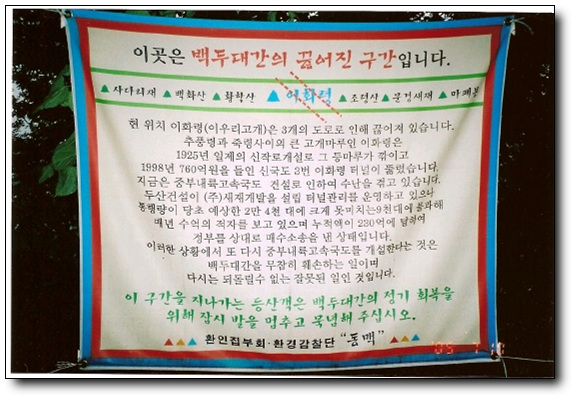 이곳은 백두대간의 끊어진 구간입니다.
▲사다리재 ▲백화산 ▲황학산 ▲이화령 ▲조령산 ▲문경새재 ▲마폐봉
현 위치 이화령(이우리고개)은 3개의 도로로 인해 끊어져 있습니다.
추풍령과 죽령사이의 큰 고개마루인 이화령은
1925년 일제의 신작로개설로 그 등마루가 깎이고
1998년 760억원을 들인 신국도 3번 이화령 터널이 뚫렸습니다.
지금은 중부내륙고속국도 건설로 인하여 수난을 겪고 있습니다.
두산건설이 (주)새재개발을 설립 터널관리를 운영하고 있으나
통행량이 당초 예상한 2만 4천 대에 크게 못미치는9천대에 불과해
매년 수억의 적자를 보고 있으며 누적액이 230억에 달하여
정부를 상대로 매수소송을 낸 상태입니다.
이러한 상황에서 또 다시 중부내륙고속국도를 개설한다는 것은
백두대간을 무참히 훼손하는 일이며
다시는 되돌릴수 없는 잘못된 일인 것입니다.
이 구간을 지나가는 등산객은 백두대간의 정기 회복을
위해 잠시 발을 멈추고 묵념해 주십시오.
▲▲▲ 환인집부회·환경감찰단 "동맥" ▲▲▲